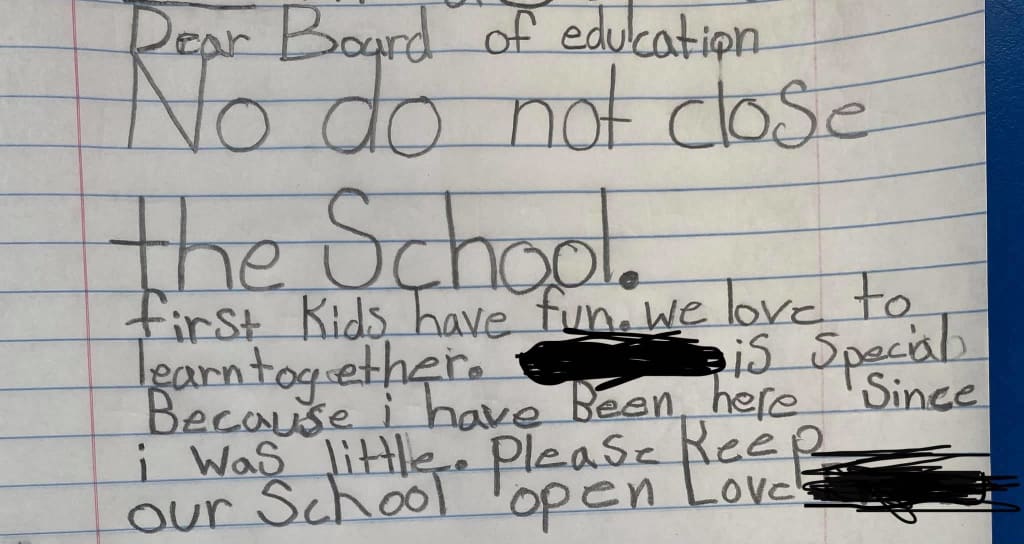 Dear Board of edukcation
No do not close
the School.
first Kids have fun. we love to
learn together. is Special
Because i have Been here Since
i was little. Please Keep
our School open Love